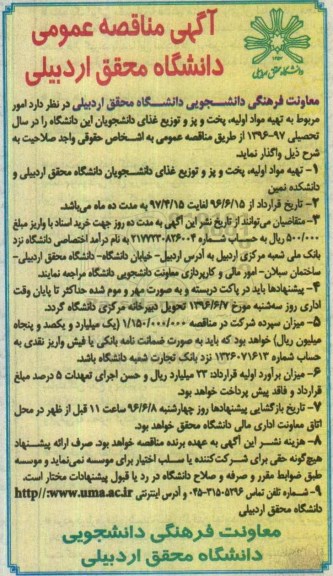 آگهی مناقصه عمومی
دانشگاه محقق اردبیلی
دانشگاه محقق اردبیلی
معاونت فرهنگی دانشـــجویی دانشـــگاه محقق اردبیلی در نظر دارد امور
مربوط به تهیه مواد اولیه، پخت و پز و توزیع غذای دانشجویان این دانشگاه را در سال
تحصیلی ۹۷–۱۳۹۶ از طریق مناقصه عمومی به اشخاص حقوقی واجد صلاحیت به
شرح ذیل واگذار نماید.
۱– تهیه مواد اولیه، پخت و پز و توزیع غذای دانشــجویان دانشگاه محقق اردبیلی و
دانشکده نمین
۲– تاریخ قرارداد از ۹۶/۶/۱۵ لغایت ۹۷/۴/۱۵ به مدت ده ماه می‌باشد.
۳– متقاضیان می‌توانند از تاریخ نشر این آگهی به مدت ده روز جهت خرید اسناد با واریز مبلغ
۵۰۰/۰۰۰ ریال به حساب شماره ۲۱۷۷۳۳۰۸۲۶۰۰۴ به نام درآمد اختصاصی دانشگاه نزد
بانک ملی شعبه مرکزی اردبیل به آدرس اردبیل– خیابان دانشگاه– دانشگاه محقق اردبیلی–
ساختمان سبلان– امور مالی و کارپردازی معاونت دانشجویی دانشگاه مراجعه نمایند.
۴– پیشنهادها باید در پاکت دربسته و به صورت مهر و موم شده حداکثر تا پایان وقت
اداری روز سه‌شنبه مورخ ۱۳۹۶/۶/۷ تحویل دبیرخانه مرکزی دانشگاه گردد.
۵– میزان سپرده شرکت در مناقصه ۱/۱۵۰/۰۰۰/۰۰۰ (یک میلیارد و یکصد و پنجاه
میلیون ریال) خواهد بود که باید به صورت ضمانت نامه بانکی یا فیش واریز نقدی به
حساب شماره ۱۳۲۶۰۷۱۶۱۳ نزد بانک تجارت شعبه دانشگاه باشد.
۶– میزان برآورد اولیه قرارداد: ۲۳ میلیارد ریال و حسن اجرای تعهدات ۵ درصد مبلغ
قرارداد و فاقد پیش پرداخت خواهد بود.
۷– تاریخ بازگشایی پیشنهادها روز چهارشنبه ۹۶/۶/۸ ساعت ۱۱ قبل از ظهر در محل
اتاق معاونت اداری مالی دانشگاه محقق خواهد بود.
۸– هزینه نشـــر این آگهی به عهده برنده مناقصه خواهد بود. صرف ارائه پیشـــنهاد
هیچ‌گونه حقی برای شرکت‌کننده یا سلب اختیار برای موسسه نمی‌نماید و موسسه
طبق ضوابط مقرر و صرفه و صلاح دانشگاه در رد یا قبول پیشنهادات مختار است.
۹– شماره تلفن تماس ۳۱۵۰۵۲۹۶–۰۴۵ و آدرس اینترنتی http//:www.uma.ac.ir
دانشگاه محقق اردبیلی
معاونت فرهنگی دانشجویی
دانشگاه محقق اردبیلی